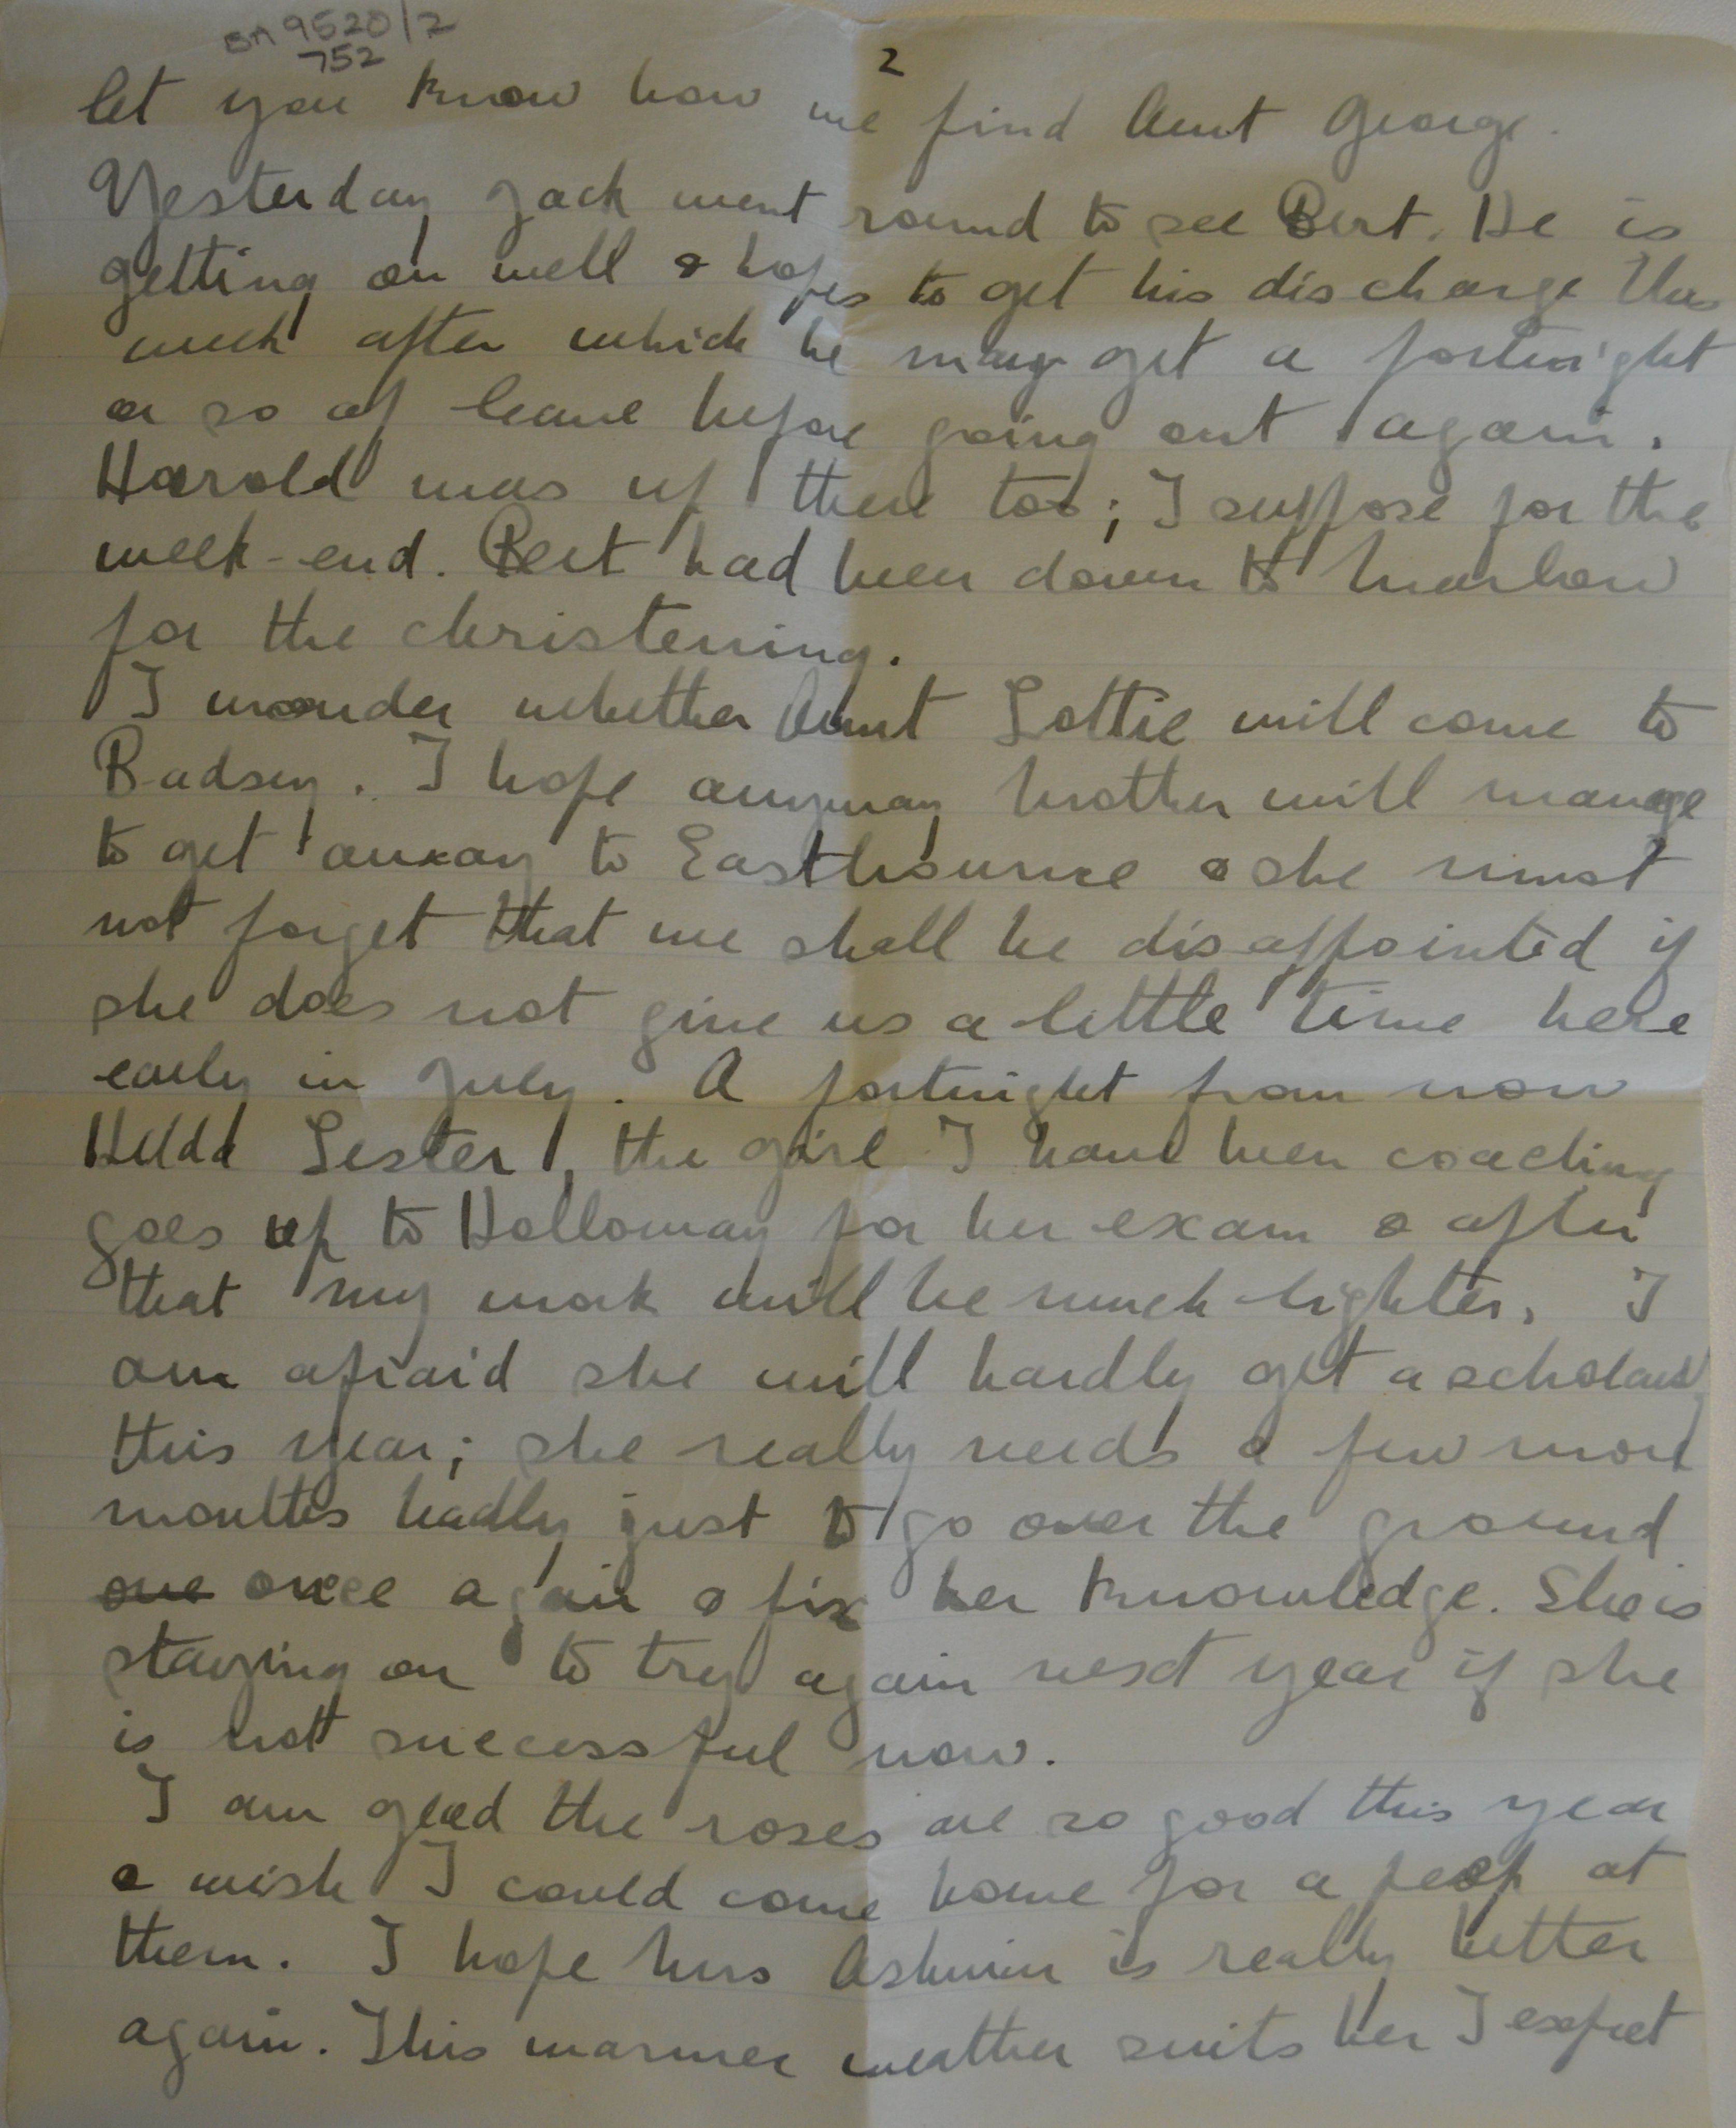 BA 9520/2
752
2
let you know how we find Aunt George.
Yesterday Jack went round to see Bert. He is
getting on well & hopes to get his discharge this
week after which he may get a fortnight
or so of leave before going out again.
Harold was up there too; I suppose for the
week-end. Bert had been down to Marlow
for the christening.
I wonder whether Aunt Lottie will come to
Badsey. I hope anyway Mother will manage
to get away to Eastbourne & she must
not forget that we shall be disappointed if
she does not give us a little time here
early in July. A fortnight from now
Hilda Lester, the girl I have been coaching
goes up to Holloway for her exam & after
that my work will be much lighter. I
am afraid she will hardly get a
this year; she really needs a few more
months badly just to go over the ground
one once again & fix her knowledge. She is
staying on to try again next year if she
is not successful now.
I am glad the roses are so good this year
& wish I could come home for a peep at
them. I hope Mrs Ashwin is really better
again. This warmer weather suits her I expect